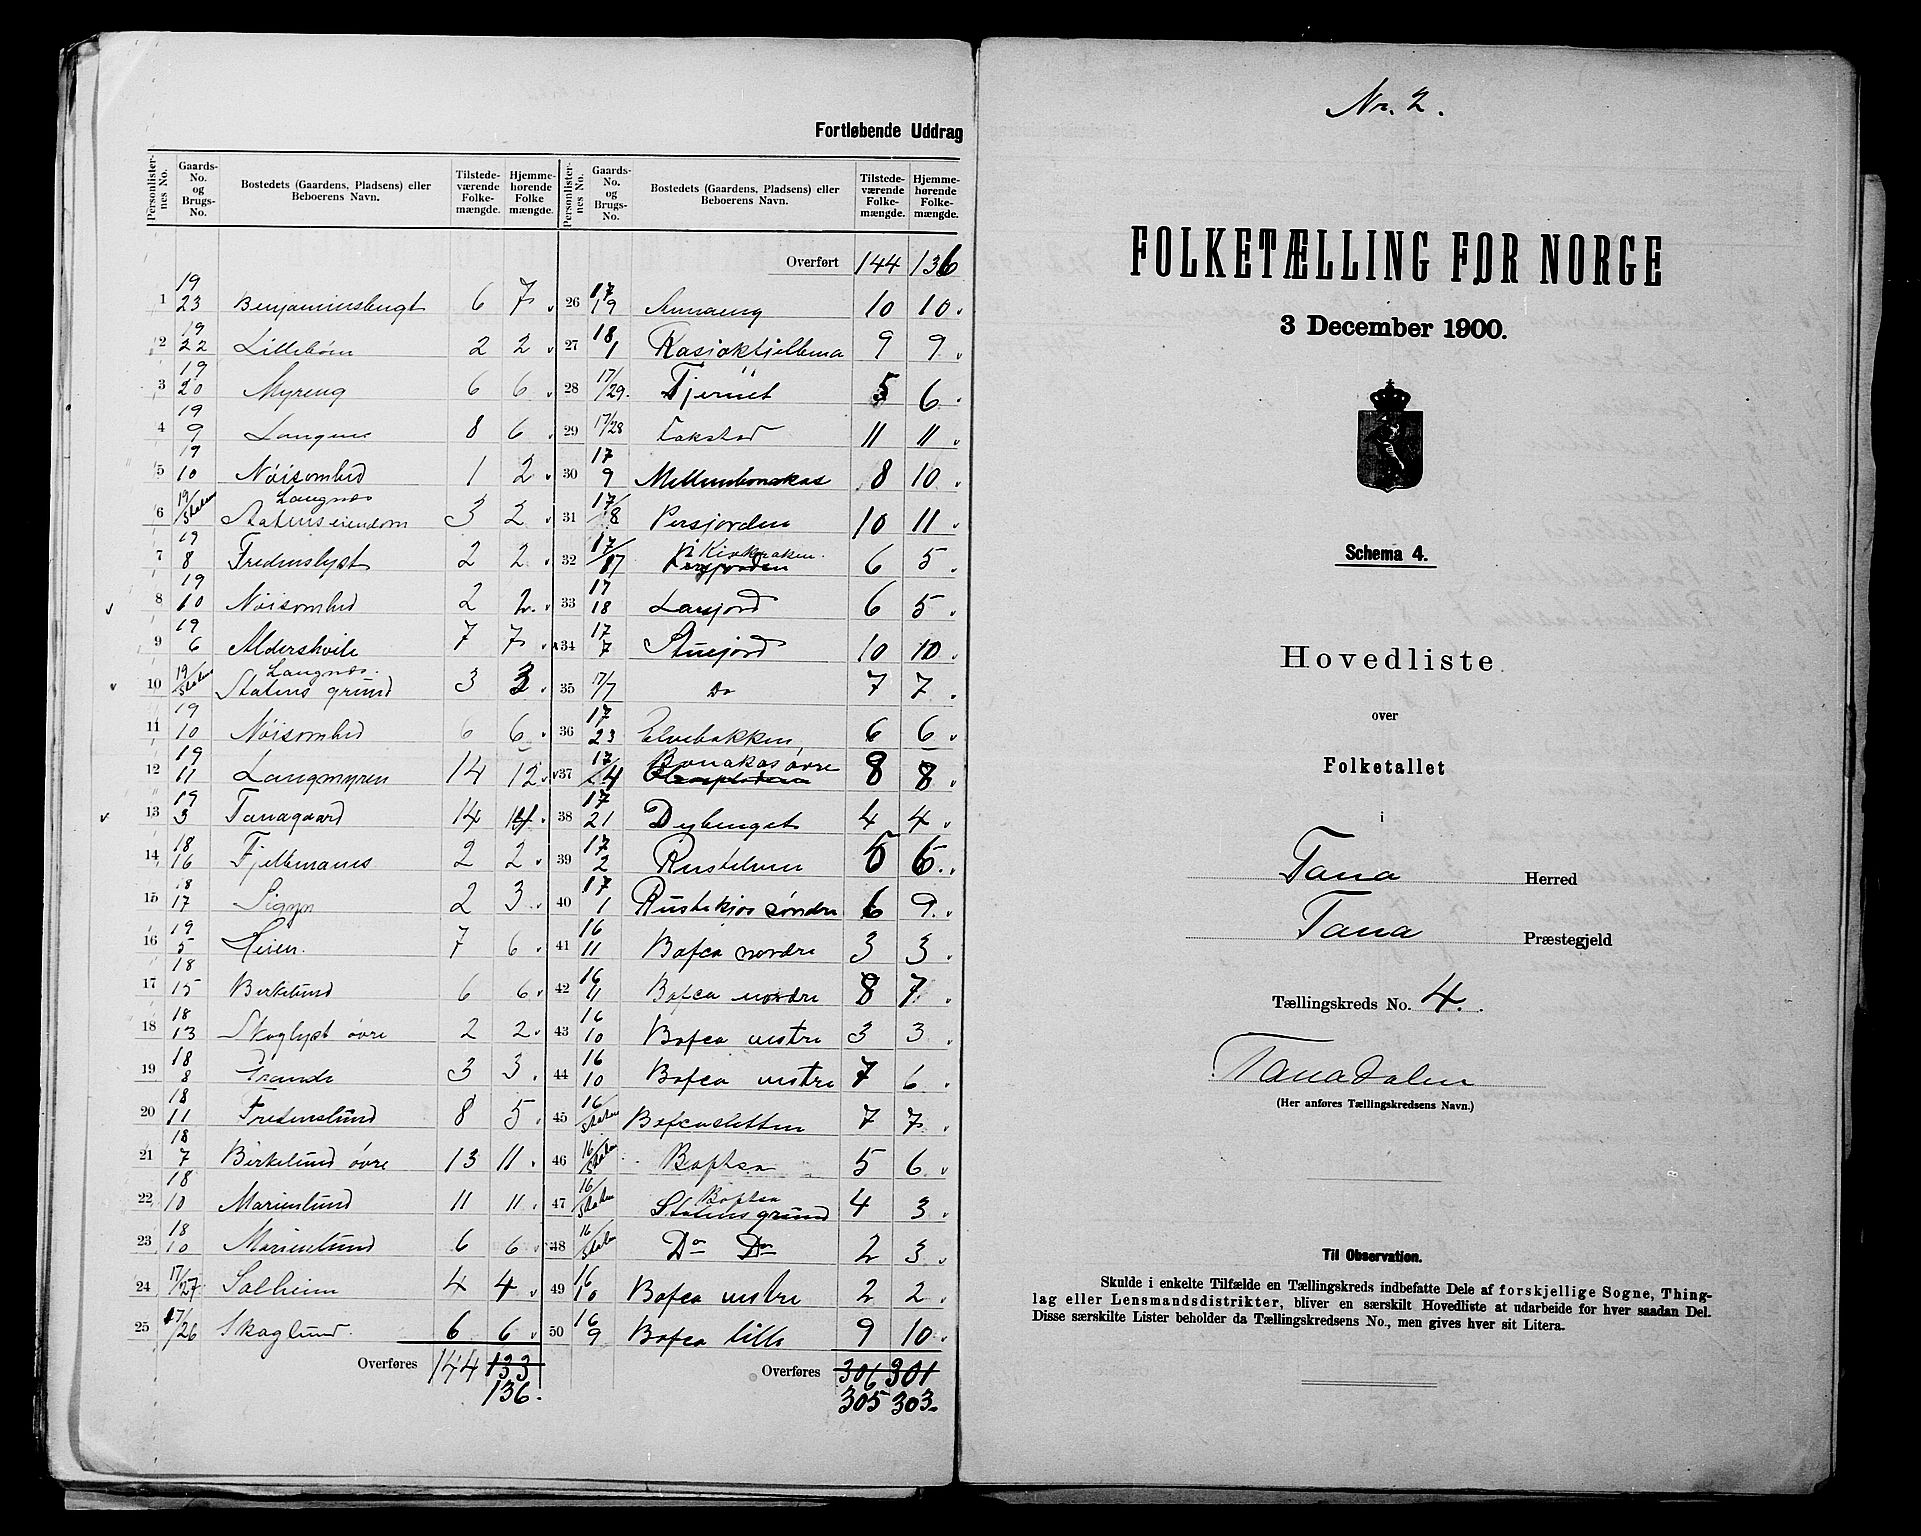 Fortløbende Uddrag
Personlister-nes No. | Gaards-No. og Brugs-No. | Bostedets (Gaardens, Pladsens) eller Beboerens Navn. | Tilstede-værende Folke-mængde. | Hjemme-hørende Folke mængde. | Personlister-nes No. | Gaards-No. og Brugs-No. | Bostedets (Gaardens, Pladsens) eller Beboerens Navn. | Tilstede-værende Folke-mængde. | Hjemme-hørende Folke-mængde.
Overført 144 136
1 19/23 Benjaminsbugt 6 7
2 19/22 Lillebom 2 2
3 19/20 Myreng 6 6
4 19/9 Langnes 8 6
5 19/10 Nöisomhed 1 2
6 19/Staten Langnæs Statens eiendom 3 2
7 19/8 Fredenslyst 2 2
8 19/10 Nöisomhed 2 2
9 19/6 Aldershvile 7 7
10 19/Staten Langnæs Statens grund 3 3
11 19/10 Nöisomhed 6 6
12 19/11 Langmyren 14 12
13 19/3 Tanagaard 14 14
14 18/16 Fjellmanes 2 2
15 18/17 Signes 2 3
16 19/5 Heien 7 6
17 18/15 Birkelund 6 6
18 18/13 Skoglyst övre 2 2
19 18/8 Grande 3 3
20 18/11 Fredenslund 8 5
21 18/7 Birkelund övre 13 11
22 18/10 Marienlund 11 11
23 18/10 Marienlund 6 6
24 17/27 Solheim 4 4
25 17/26 Skoglund 6 6
Overføres 144 133
136.
26 17/19 Annaeng 10 10
27 18/1 Rasjokfjellma 9 9
28 17/29 Fjernet 5 6
29 17/28 Fokstad 11 11
30 17/9 Mellembonakas 8 10
31 17/8 Persjorden 10 11
32 17/17 Kirkbakken Persjorden 6 5
33 17/18 Larsjord 6 5
34 17/7 Stuejord 10 10
35 17/7 Do 7 7
36 17/23 Elvebakken 6 6
37 17/4 Bonakas övre 8 8
38 17/21 Dybenget 4 4
39 17/2 Rustelven 5 6
40 17/1 Rustekjos söndre 6 9
41 16/11 Bofca nordre 3 3
42 16/11 Bofca nordre 8 7
43 16/10 Bofca vestre 3 3
44 16/10 Bofca vestre 7 6
45 16/Staten Bofcasletten 7 7
46 16/Staten Boftsa 5 6
47 16/Staten Boftsa Statens grund 4 3
48 16/Staten Do Do 2 3
49 16/10 Bofca vestre 2 2
50 16/9 Bofca lille 9 10
Overføres 306 301
305 303
Nr. 2.
FOLKETÆLLING FØR NORGE
3 December 1900.
Schema 4.
Hovedliste
over
Folketallet
i
Tana Herred
Tana Præstegjeld
Tællingskreds No. 4.
Tanadalen
(Her anføres Tællingskredsens Navn.)
Til Observation.
Skulde i enkelte Tilfælde en Tællingskreds indbefatte Dele af forskjellige Sogne, Thing-
lag eller Lensmandsdistrikter, bliver en særskilt Hovedliste at udarbeide for hver saadan Del.
Disse særskilte Lister beholder da Tællingskredsens No., men gives hver sit Litera.